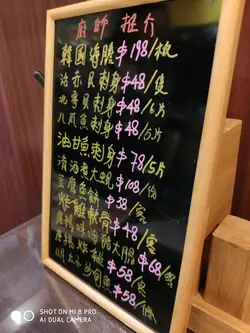 廚師推介
韓國海膽$198/板
活赤貝刺身$48/隻
北寄貝刺身$48/6片
八爪魚刺身$48/5片
油甘魚刺身$78/5片
清酒煮大蜆$108/份
$38/客
炸雞軟骨$48/客
大腸$68/客
$58/客
明太子$58/
SHOT ON MI 8 PRO
AI DUAL CAMERA